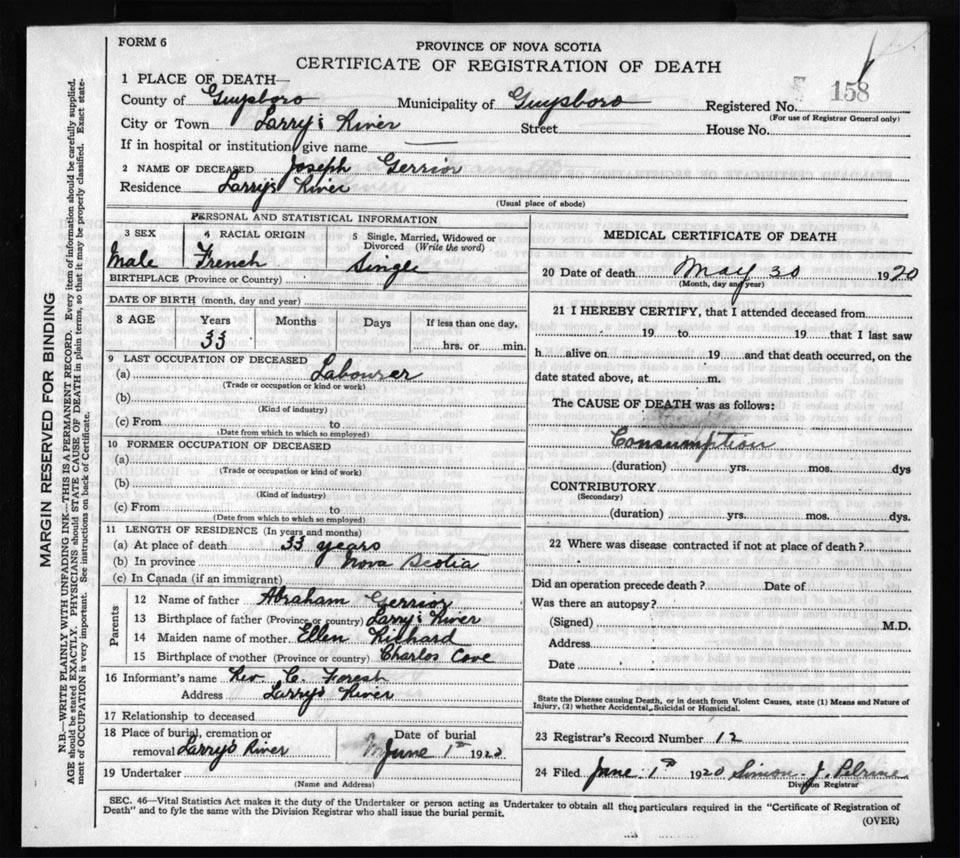 FORM 6
PROVINCE OF NOVA SCOTIA
CERTIFICATE OF REGISTRATION OF DEATH
1 PLACE OF DEATH—
County of Guysboro Municipality of Guysboro Registered No. 158
(For use of Registrar General only)
City or Town Larry's River Street House No.
If in hospital or institution, give name —
2 NAME OF DECEASED Joseph Gerrior
Residence Larry's River
(Usual place of abode)
PERSONAL AND STATISTICAL INFORMATION
3 SEX 4 RACIAL ORIGIN 5 Single, Married, Widowed or Divorced (Write the word)
Male French Single
BIRTHPLACE (Province or Country)
DATE OF BIRTH (month, day and year)
8 AGE Years Months Days If less than one day,
33 hrs. or min.
9 LAST OCCUPATION OF DECEASED
(a) Labourer
(Trade or occupation or kind of work)
(b)
(Kind of industry)
(c) From to
(Date from which to which so employed)
10 FORMER OCCUPATION OF DECEASED
(a)
(Trade or occupation or kind of work)
(b)
(Kind of industry)
(c) From to
(Date from which to which so employed)
11 LENGTH OF RESIDENCE (In years and months)
(a) At place of death 33 years
(b) In province Nova Scotia
(c) In Canada (if an immigrant)
Parents
12 Name of father Abraham Gerrior
13 Birthplace of father (Province or country) Larry's River
14 Maiden name of mother Ellen Richard
15 Birthplace of mother (Province or country) Charlos Cove
16 Informant's name Rev. C. Forest
Address Larrys River
17 Relationship to deceased
18 Place of burial, cremation or removal Larry's River
Date of burial
June 1st 1920
19 Undertaker
(Name and Address)
MEDICAL CERTIFICATE OF DEATH
20 Date of death May 30 1920
(Month, day and year)
21 I HEREBY CERTIFY, that I attended deceased from
19 to 19 that I last saw
h alive on 19 and that death occurred, on the
date stated above, at m.
The CAUSE OF DEATH was as follows:
Consumption
(duration) yrs. mos. dys
CONTRIBUTORY
(Secondary)
(duration) yrs. mos. dys.
22 Where was disease contracted if not at place of death?
Did an operation precede death? Date of
Was there an autopsy?
(Signed) M.D.
Address
Date
State the Disease causing Death, or in death from Violent Causes, state (1) Means and Nature of
Injury, (2) whether Accidental, Suicidal or Homicidal.
23 Registrar's Record Number 12
24 Filed June 1st 1920 Simon J. Pelrine
Division Registrar
SEC. 46—Vital Statistics Act makes it the duty of the Undertaker or person acting as Undertaker to obtain all the particulars required in the "Certificate of Registration of
Death" and to fyle the same with the Division Registrar who shall issue the burial permit.
(OVER)
MARGIN RESERVED FOR BINDING
N.B.—WRITE PLAINLY WITH UNFADING INK—THIS IS A PERMANENT RECORD. Every item of information should be carefully supplied.
AGE should be stated EXACTLY. PHYSICIANS should STATE CAUSE OF DEATH in plain terms, so that it may be properly classified. Exact state-
ment of OCCUPATION is very important. See instructions on back of Certificate.